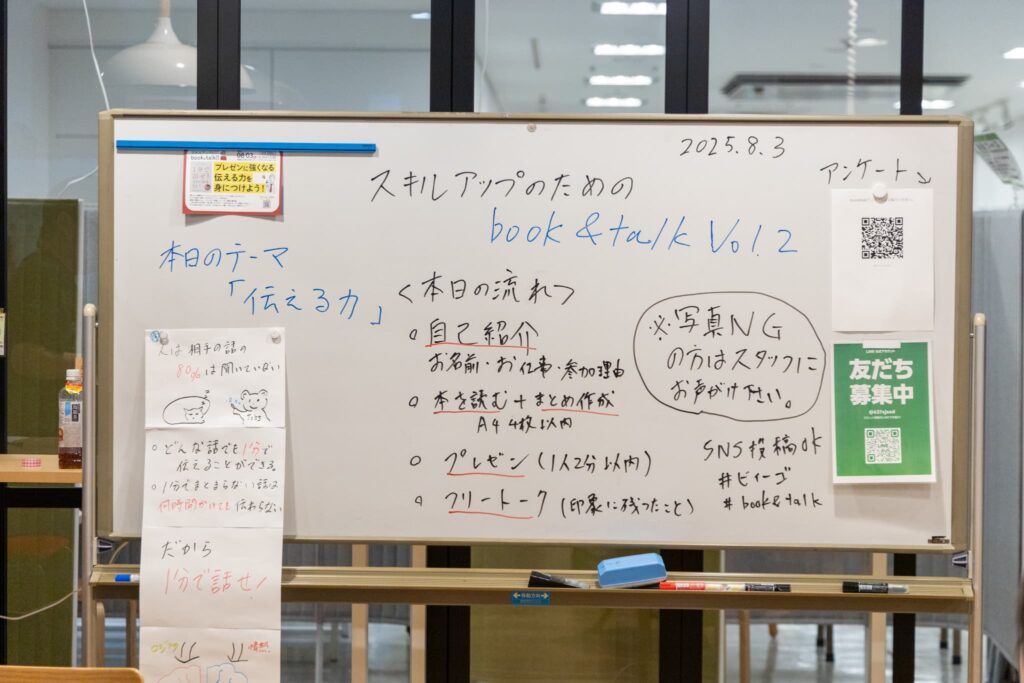 2025.8.3
スキルアップのための
book & talk Vol.2
アンケート
book&talk!!
08.03
プレゼンに強くなる
伝える力を
身につけよう!
本日のテーマ
「伝える力」
<本日の流れ>
○ 自己紹介
お名前・お仕事・参加理由
○ 本を読む+まとめ作成
A4 4枚以内
○ プレゼン(1人2分以内)
○ フリートーク(印象に残ったこと)
※写真NG
の方はスタッフに
お声がけ下さい。
SNS投稿OK
#ビーゴ
#book&talk
LINE 公式アカウント
友だち
募集中
LINE
人は相手の話の
80%は聞いていない
○ どんな話でも1分で
伝えることができる
○ 1分でまとまらない話は
何時間かけても伝わらない
だから
1分で話せ!
ロジック
情熱